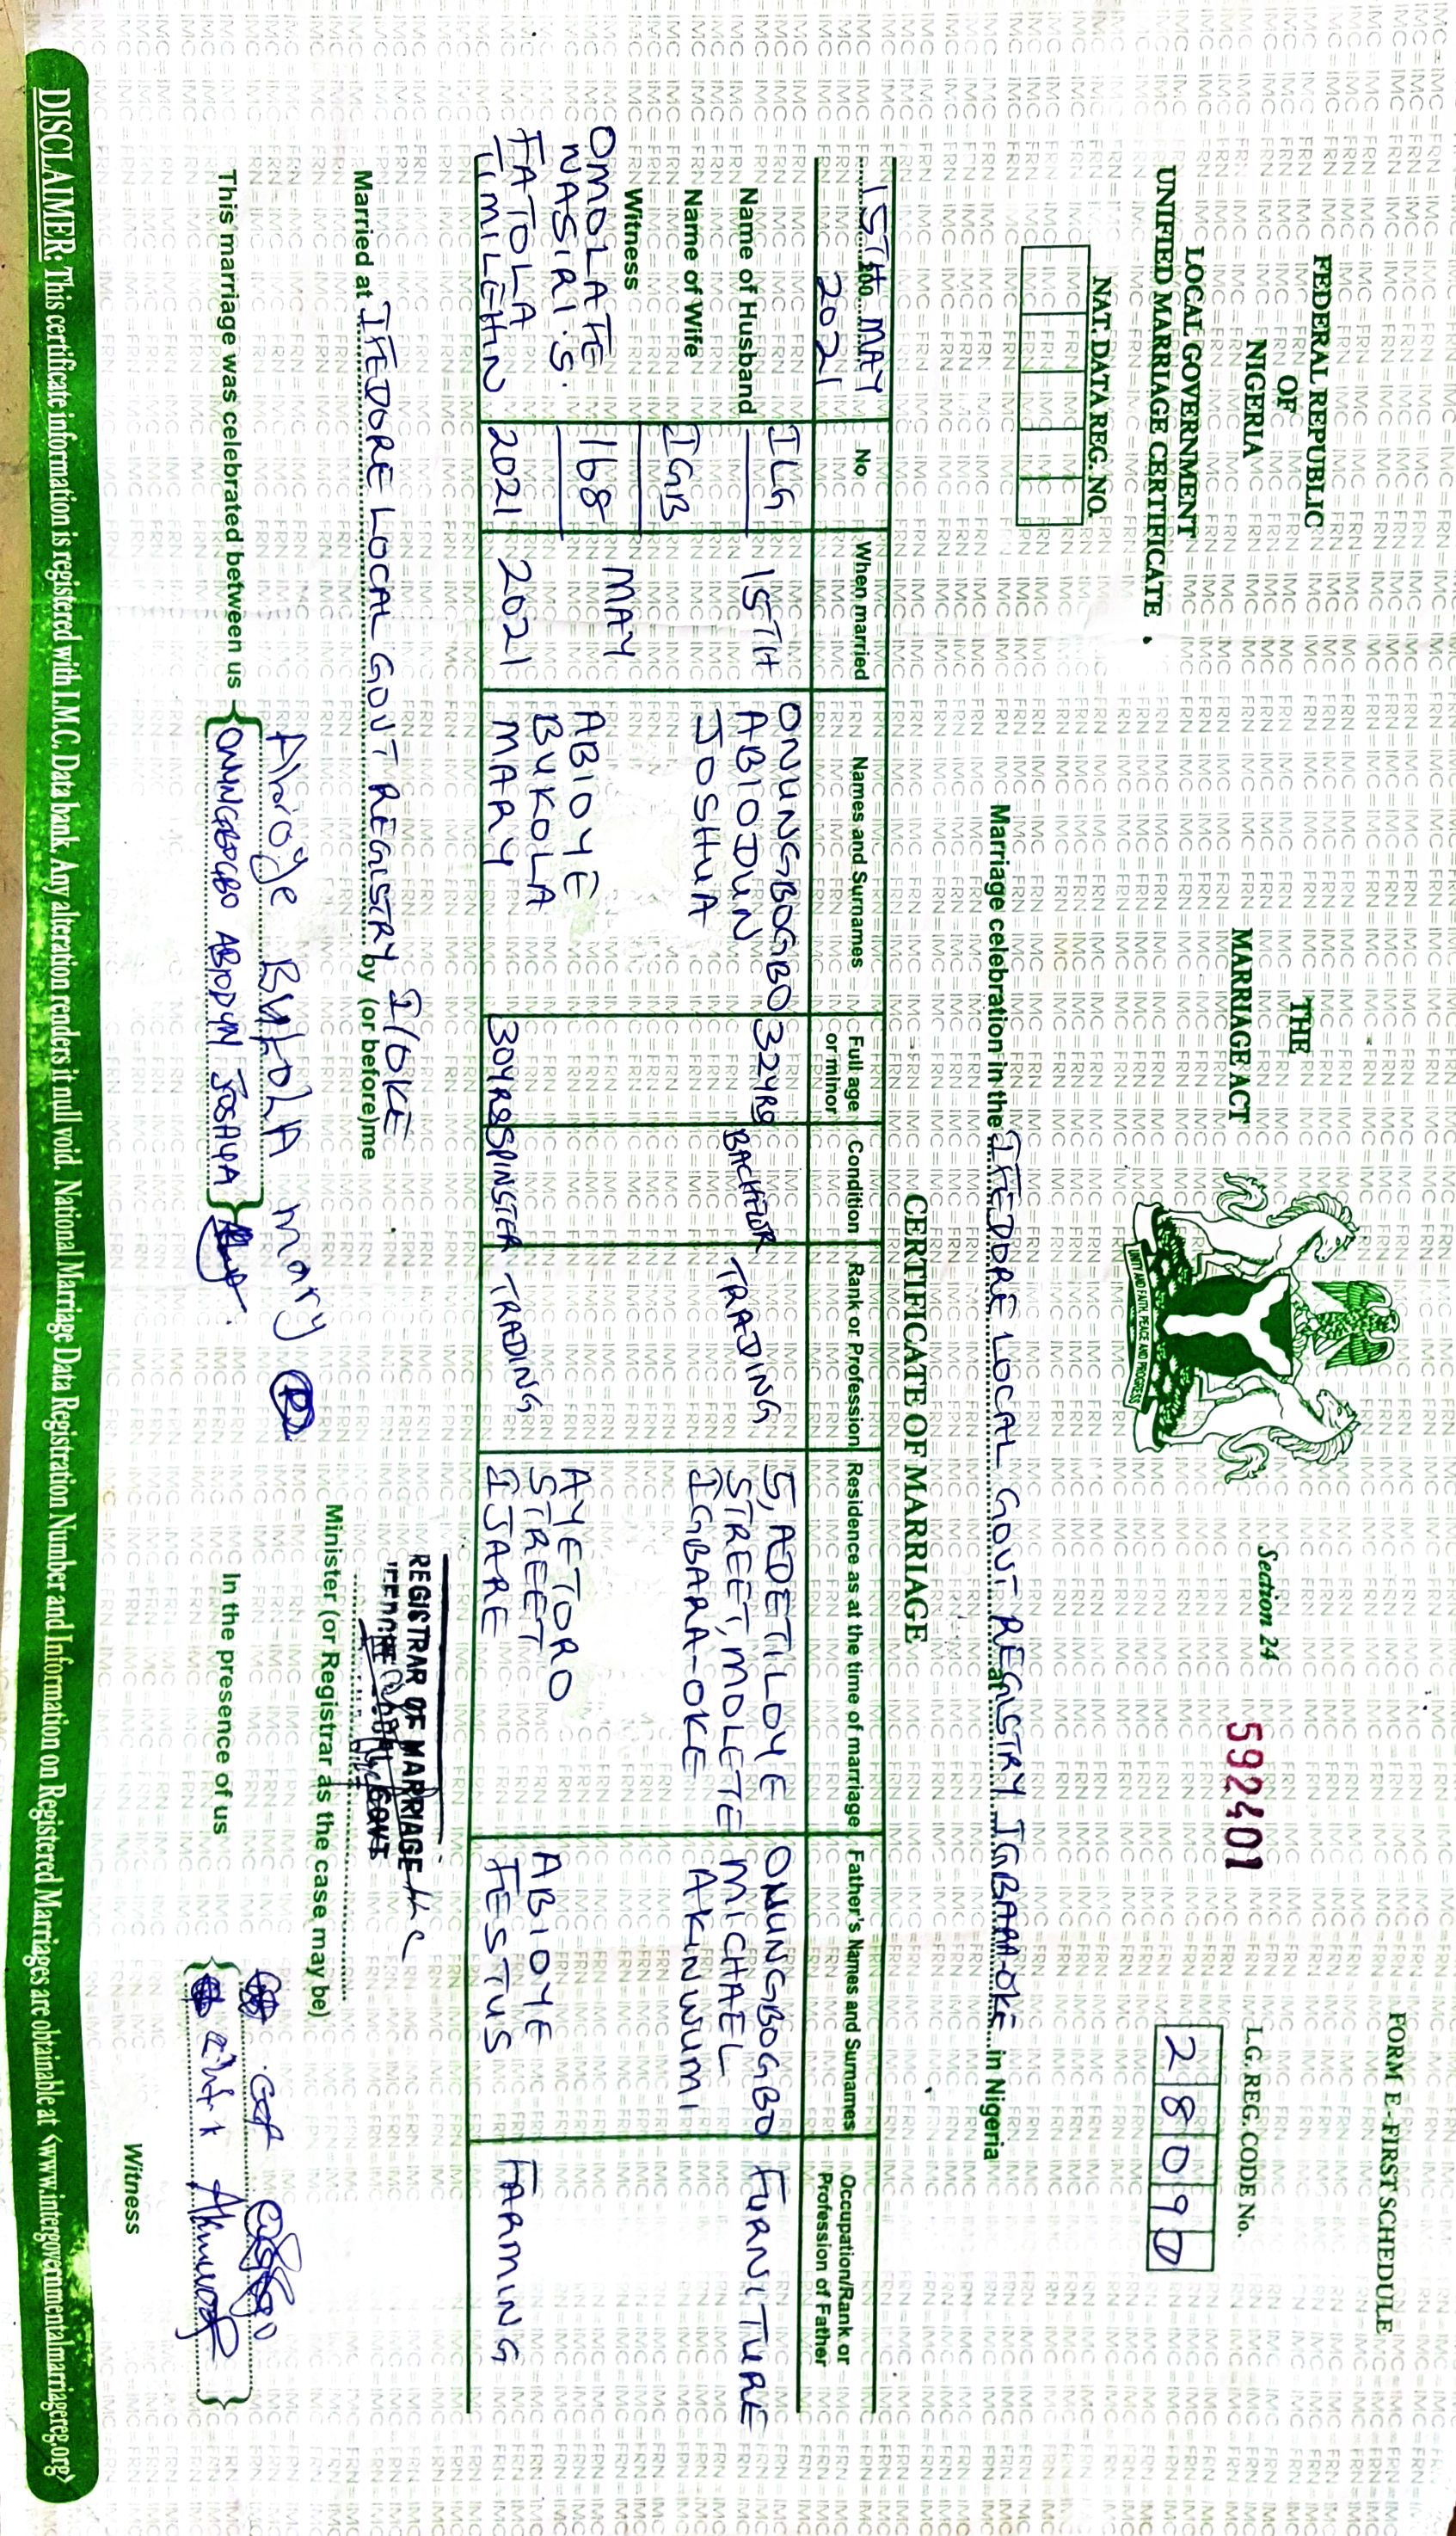 FEDERAL REPUBLIC
OF
NIGERIA
LOCAL GOVERNMENT
UNIFIED MARRIAGE CERTIFICATE
NAT. DATA REG. NO.
THE
MARRIAGE ACT
UNITY AND FAITH, PEACE AND PROGRESS
Section 24
592401
FORM E - FIRST SCHEDULE
L.G. REG. CODE No.
2 8 0 9 D
Marriage celebration in the IFEDORE LOCAL GOVT REGISTRY IGBARA-OKE in Nigeria
CERTIFICATE OF MARRIAGE
15TH MAY 2021
No
When married
Names and Surnames
Full age or minor
Condition
Rank or Profession
Residence as at the time of marriage
Father's Names and Surnames
Occupation/Rank or Profession of Father
Name of Husband
Name of Wife
Witness
OMOLAFE
NASIRI.S.
FATOLA
TIMILEHIN
ILG
IGB
168
2021
15TH
MAY
2021
ONUNGBOGBO
ABIODUN
JOSHUA
32YRS
BACHELOR
TRADING
5, ADETILOYE
STREET, MOLETE
IGBARA-OKE
ONUNGBOGBO
MICHAEL
AKINWUMI
FURNITURE
ABIOYE
BUKOLA
MARY
30YRS
SPINSTER
TRADING
AYETORO
STREET
IJARE
ABIOYE
FESTUS
FARMING
Married at IFEDORE LOCAL GOVT REGISTRY I/OKE by (or before) me
REGISTRAR OF MARRIAGE
Minister (or Registrar as the case may be)
This marriage was celebrated between us
Abioye Bukola Mary
ONUNGBOGBO ABIODUN JOSHUA
In the presence of us
Witness
DISCLAIMER: This certificate information is registered with I.M.C. Data bank. Any alteration renders it null void. National Marriage Data Registration Number and Information on Registered Marriages are obtainable at <www.intergovernmentalmarriagereg.org>